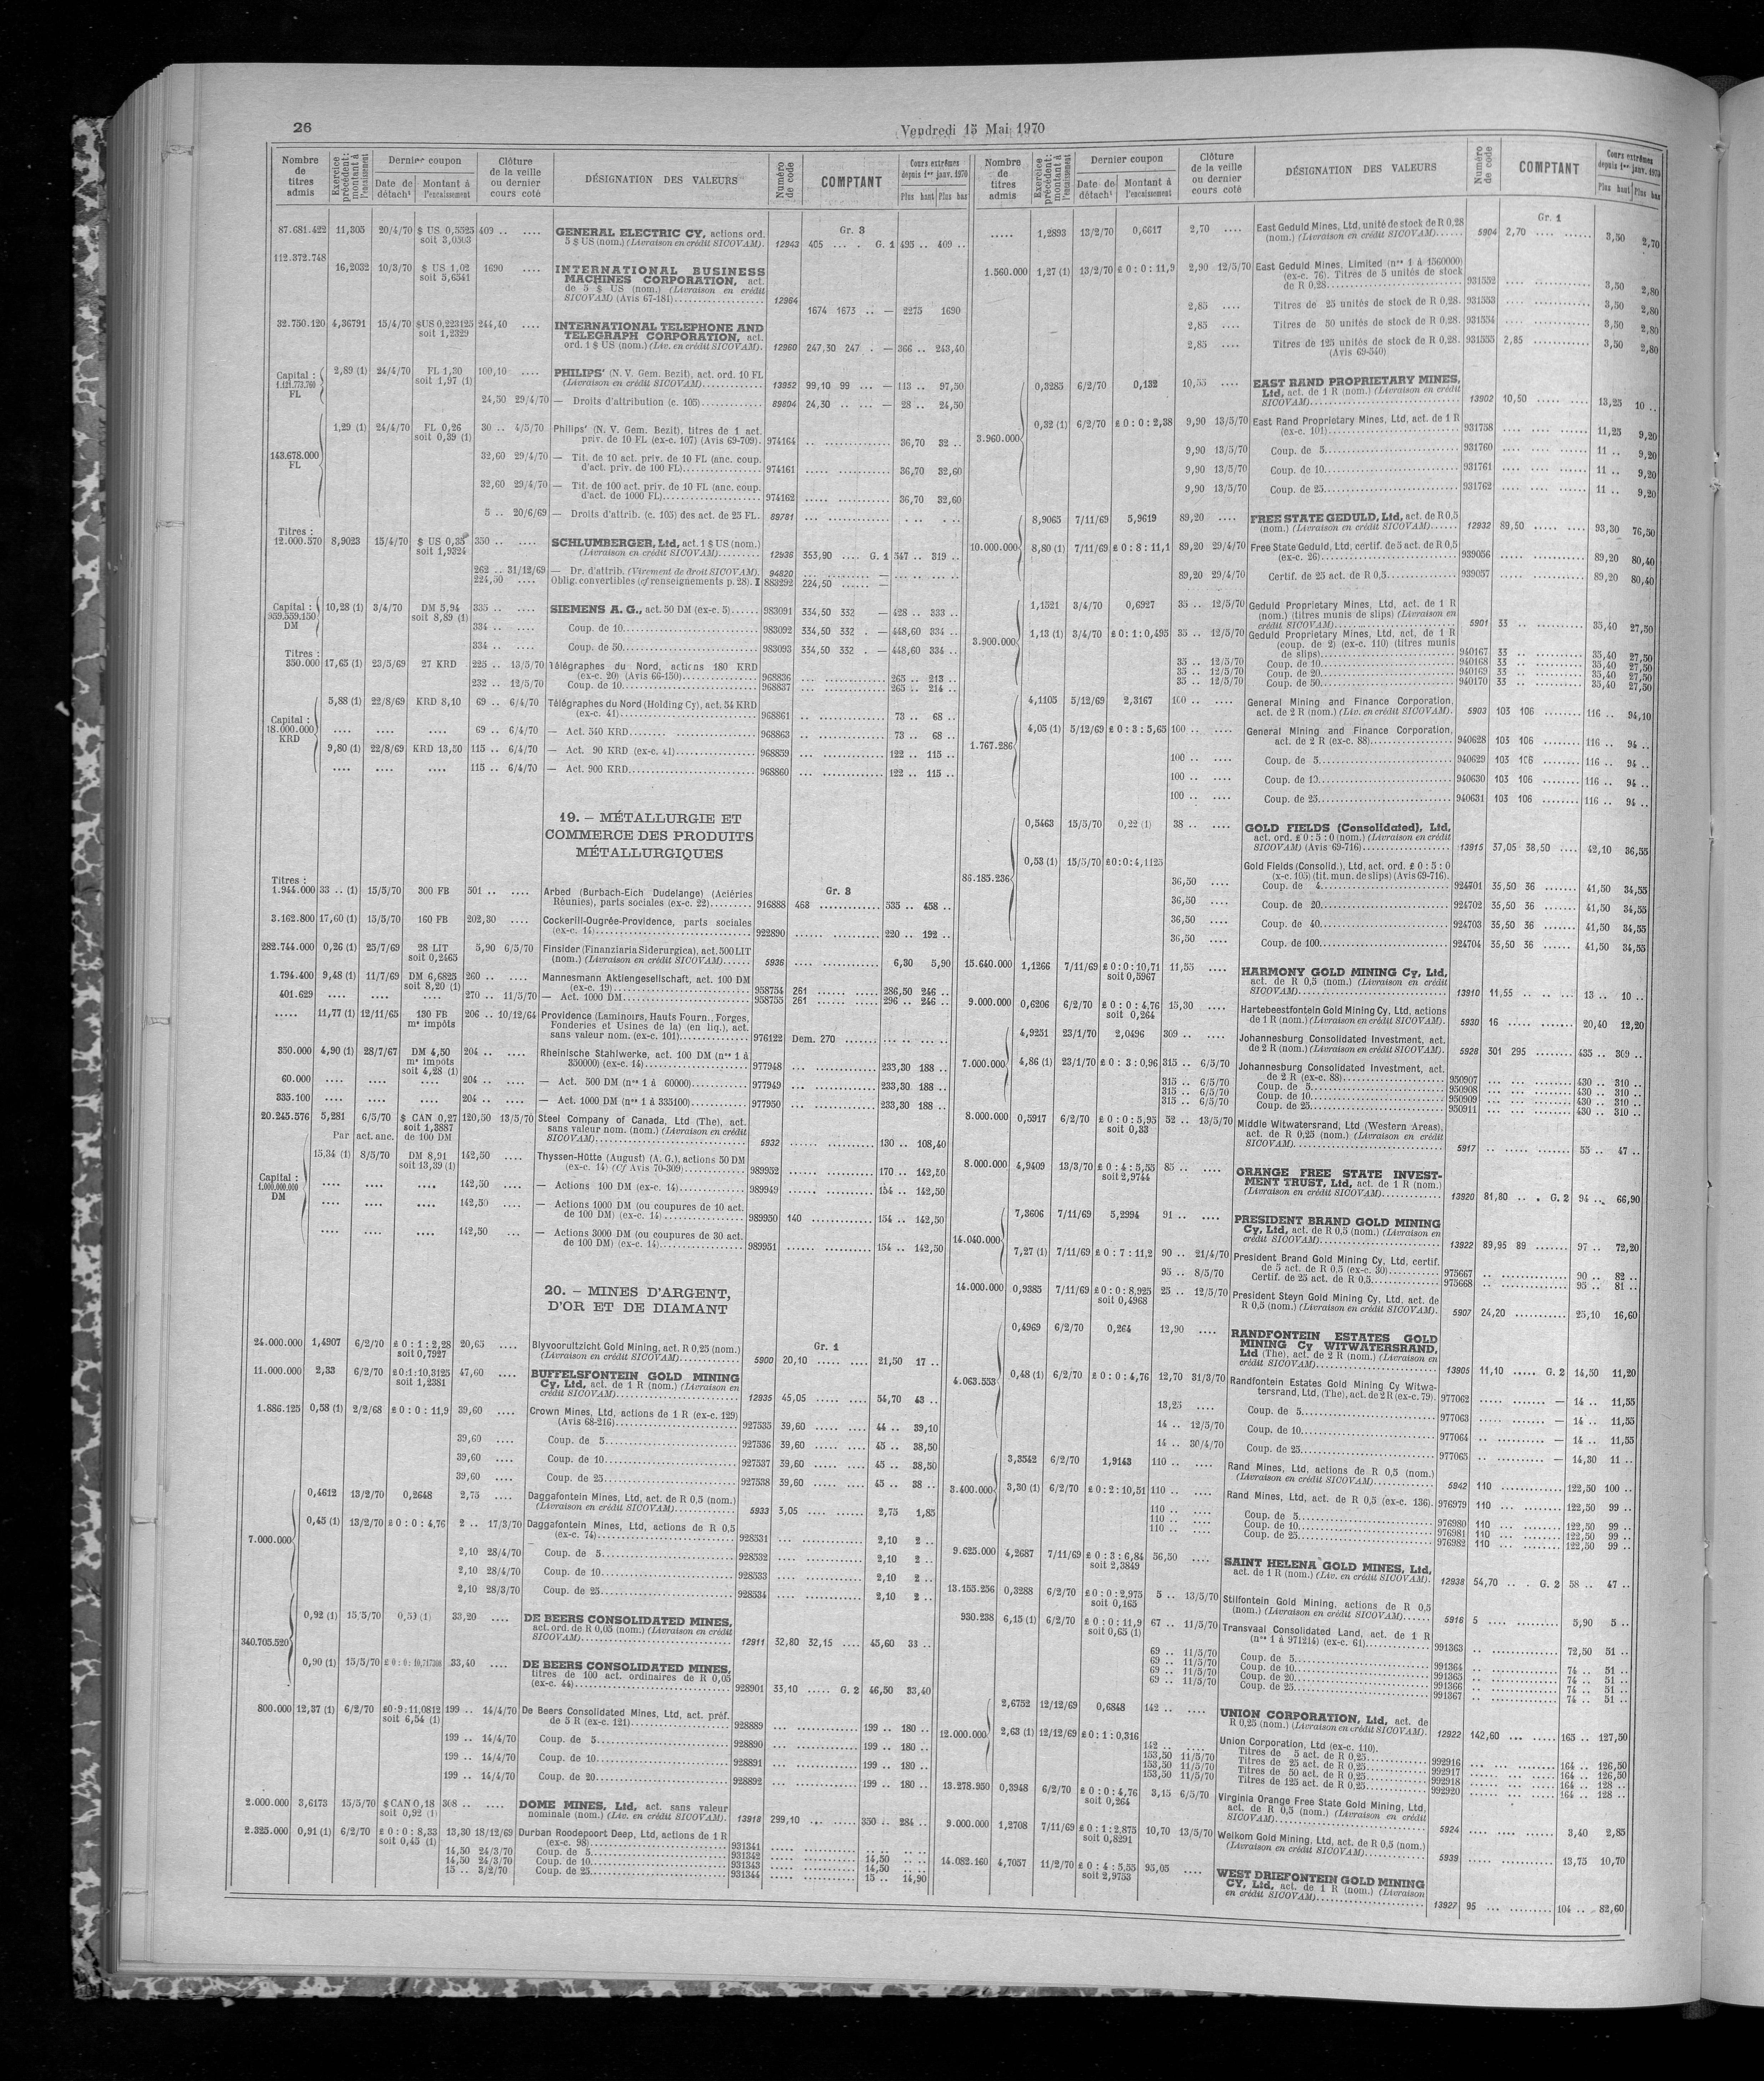 26
Vendredi 15 Mai 1970
Nombre de titres admis | Exercice précédent : montant à l'encaissement | Dernier coupon | Date de détach^t | Montant à l'encaissement | Clôture de la veille ou dernier cours coté | DÉSIGNATION DES VALEURS | Numéro de code | COMPTANT | Cours extrêmes depuis 1er janv. 1970 | Plus haut | Plus bas
Gr. 3
87.681.422 11,305 20/4/70 $ US 0,5525 409 .. .... GENERAL ELECTRIC CY, actions ord.
soit 3,0503 5 $ US (nom.) (Livraison en crédit SICOVAM). 12943 405 ... . G. 1 495 .. 409 ..
112.372.748
16,2032 10/3/70 $ US 1,02 1690 .... INTERNATIONAL BUSINESS
soit 5,6541 MACHINES CORPORATION, act.
de 5 $ US (nom.) (Livraison en crédit
SICOVAM) (Avis 67-181) 12964 1674 1673 .. — 2275 1690
32.750.120 4,36791 15/4/70 $US 0,223125 244,40 .... INTERNATIONAL TELEPHONE AND
soit 1,2329 TELEGRAPH CORPORATION, act.
ord. 1 $ US (nom.) (Liv. en crédit SICOVAM). 12960 247,30 247 . — 366 .. 243,40
Capital : 1.121.773.760 FL
2,89 (1) 24/4/70 FL 1,30 100,10 .... PHILIPS' (N. V. Gem. Bezit), act. ord. 10 FL
soit 1,97 (1) (Livraison en crédit SICOVAM) 13952 99,10 99 ... — 113 .. 97,50
24,50 29/4/70 — Droits d'attribution (c. 105) 89804 24,30 .. ... — 28 .. 24,50
143.678.000 FL
1,29 (1) 24/4/70 FL 0,26 30 .. 4/5/70 Philips' (N. V. Gem. Bezit), titres de 1 act.
soit 0,39 (1) priv. de 10 FL (ex-c. 107) (Avis 69-709). 974164 36,70 32 ..
32,60 29/4/70 — Tit. de 10 act. priv. de 10 FL (anc. coup.
d'act. priv. de 100 FL) 974161 36,70 32,60
32,60 29/4/70 — Tit. de 100 act. priv. de 10 FL (anc. coup.
d'act. de 1000 FL) 974162 36,70 32,60
5 .. 20/6/69 — Droits d'attrib. (c. 105) des act. de 25 FL. 89781
Titres :
12.000.570 8,9023 15/4/70 $ US 0,35 350 .. .... SCHLUMBERGER, Ltd, act. 1 $ US (nom.)
soit 1,9324 (Livraison en crédit SICOVAM) 12936 353,90 .... G. 1 547 .. 319 ..
262 .. 31/12/69 — Dr. d'attrib. (Virement de droit SICOVAM). 94820
224,50 .... Oblig. convertibles (cf renseignements p. 28). I 883292 224,50 —
Capital : 959.559.150 DM
10,28 (1) 3/4/70 DM 5,94 335 .. .... SIEMENS A. G., act. 50 DM (ex-c. 5) 983091 334,50 332 — 428 .. 333 ..
soit 8,89 (1)
334 .. .... Coup. de 10 983092 334,50 332 . — 448,60 334 ..
334 .. .... Coup. de 50 983093 334,50 332 . — 448,60 334 ..
Titres :
350.000 17,65 (1) 23/5/69 27 KRD 225 .. 13/5/70 Télégraphes du Nord, actions 180 KRD
(ex-c. 20) (Avis 66-150) 968836 265 .. 213 ..
232 .. 12/5/70 Coup. de 10 968837 265 .. 214 ..
Capital : 18.000.000 KRD
5,88 (1) 22/8/69 KRD 8,10 69 .. 6/4/70 Télégraphes du Nord (Holding Cy), act. 54 KRD
(ex-c. 41) 968861 73 .. 68 ..
69 .. 6/4/70 — Act. 540 KRD 968863 73 .. 68 ..
9,80 (1) 22/8/69 KRD 13,50 115 .. 6/4/70 — Act. 90 KRD (ex-c. 41) 968859 122 .. 115 ..
115 .. 6/4/70 — Act. 900 KRD 968860 122 .. 115 ..
19. – MÉTALLURGIE ET
COMMERCE DES PRODUITS
MÉTALLURGIQUES
Gr. 3
Titres :
1.944.000 33 .. (1) 15/5/70 300 FB 501 .. .... Arbed (Burbach-Eich Dudelange) (Aciéries
Réunies), parts sociales (ex-c. 22) 916888 468 535 .. 458 ..
3.162.800 17,60 (1) 15/5/70 160 FB 202,30 .... Cockerill-Ougrée-Providence, parts sociales
(ex-c. 14) 922890 220 .. 192 ..
282.744.000 0,26 (1) 25/7/69 28 LIT 5,90 6/5/70 Finsider (Finanziaria Siderurgica), act. 500 LIT
soit 0,2465 (nom.) (Livraison en crédit SICOVAM) 5936 6,30 5,90
1.794.400 9,48 (1) 11/7/69 DM 6,6825 260 .. .... Mannesmann Aktiengesellschaft, act. 100 DM
soit 8,20 (1) (ex-c. 19) 958754 261 286,50 246 ..
401.629 .... .... .... 270 .. 11/5/70 — Act. 1000 DM 958755 261 296 .. 246 ..
..... 11,77 (1) 12/11/65 130 FB 206 .. 10/12/64 Providence (Laminoirs, Hauts Fourn., Forges,
m^s impôts Fonderies et Usines de la) (en liq.), act.
sans valeur nom. (ex-c. 101) 976122 Dem. 270
350.000 4,90 (1) 28/7/67 DM 4,50 204 .. .... Rheinische Stahlwerke, act. 100 DM (nos 1 à
m^s impôts soit 4,28 (1) 350000) (ex-c. 14) 977948 233,30 188 ..
60.000 .... .... .... 204 .. .... — Act. 500 DM (nos 1 à 60000) 977949 233,30 188 ..
335.100 .... .... .... 204 .. .... — Act. 1000 DM (nos 1 à 335100) 977950 233,30 188 ..
20.245.576 5,281 6/5/70 $ CAN 0,27 120,50 13/5/70 Steel Company of Canada, Ltd (The), act.
soit 1,3887 sans valeur nom. (nom.) (Livraison en crédit
Par act. anc. de 100 DM SICOVAM) 5932 130 .. 108,40
Capital : 1.000.000.000 DM
15,34 (1) 8/5/70 DM 8,91 142,50 .... Thyssen-Hütte (August) (A. G.), actions 50 DM
soit 13,39 (1) (ex-c. 14) (Cf Avis 70-309) 989952 170 .. 142,50
142,50 .... — Actions 100 DM (ex-c. 14) 989949 154 .. 142,50
142,50 .... — Actions 1000 DM (ou coupures de 10 act.
de 100 DM) (ex-c. 14) 989950 140 154 .. 142,50
142,50 ... — Actions 3000 DM (ou coupures de 30 act.
de 100 DM) (ex-c. 14) 989951 154 .. 142,50
20. – MINES D'ARGENT,
D'OR ET DE DIAMANT
Gr. 1
24.000.000 1,4907 6/2/70 £ 0 : 1 : 2,28 20,65 .... Blyvooruitzicht Gold Mining, act. R 0,25 (nom.)
soit 0,7927 (Livraison en crédit SICOVAM) 5900 20,10 21,50 17 ..
11.000.000 2,33 6/2/70 £0:1:10,3125 47,60 .... BUFFELSFONTEIN GOLD MINING
soit 1,2381 Cy, Ltd, act. de 1 R (nom.) (Livraison en
crédit SICOVAM) 12935 45,05 54,70 43 ..
1.886.125 0,58 (1) 2/2/68 £ 0 : 0 : 11,9 39,60 .... Crown Mines, Ltd, actions de 1 R (ex-c. 129)
(Avis 68-216) 927535 39,60 44 .. 39,10
39,60 .... Coup. de 5 927536 39,60 45 .. 38,50
39,60 .... Coup. de 10 927537 39,60 45 .. 38,50
39,60 .... Coup. de 25 927538 39,60 45 .. 38 ..
7.000.000
0,4612 13/2/70 0,2648 2,75 .... Daggafontein Mines, Ltd, act. de R 0,5 (nom.)
(Livraison en crédit SICOVAM) 5933 3,05 2,75 1,85
0,45 (1) 13/2/70 £ 0 : 0 : 4,76 2 .. 17/3/70 Daggafontein Mines, Ltd, actions de R 0,5
(ex-c. 74) 928531 2,10 2 ..
2,10 28/4/70 Coup. de 5 928532 2,10 2 ..
2,10 28/4/70 Coup. de 10 928533 2,10 2 ..
2,10 28/3/70 Coup. de 25 928534 2,10 2 ..
340.705.520
0,92 (1) 15/5/70 0,59 (1) 33,20 .... DE BEERS CONSOLIDATED MINES,
act. ord. de R 0,05 (nom.) (Livraison en crédit
SICOVAM) 12911 32,80 32,15 .... 45,60 33 ..
0,90 (1) 15/5/70 33,40 .... DE BEERS CONSOLIDATED MINES,
titres de 100 act. ordinaires de R 0,05
(ex-c. 44) 928901 33,10 ..... G. 2 46,50 33,40
800.000 12,37 (1) 6/2/70 £0:9:11,0812 199 .. 14/4/70 De Beers Consolidated Mines, Ltd, act. préf.
soit 6,54 (1) de 5 R (ex-c. 121) 928889 199 .. 180 ..
199 .. 14/4/70 Coup. de 5 928890 199 .. 180 ..
199 .. 14/4/70 Coup. de 10 928891 199 .. 180 ..
199 .. 14/4/70 Coup. de 20 928892 199 .. 180 ..
2.000.000 3,6173 15/5/70 $ CAN 0,18 308 .. .... DOME MINES, Ltd, act. sans valeur
soit 0,92 (1) nominale (nom.) (Liv. en crédit SICOVAM). 13918 299,10 350 .. 284 ..
2.325.000 0,91 (1) 6/2/70 £ 0 : 0 : 8,33 13,30 18/12/69 Durban Roodepoort Deep, Ltd, actions de 1 R
soit 0,45 (1) (ex-c. 98) 931341
14,50 24/3/70 Coup. de 5 931342 14,50
14,50 24/3/70 Coup. de 10 931343 14,50
15 .. 3/2/70 Coup. de 25 931344 15 .. 14,90
Nombre de titres admis | Exercice précédent : montant à l'encaissement | Dernier coupon | Date de détach^t | Montant à l'encaissement | Clôture de la veille ou dernier cours coté | DÉSIGNATION DES VALEURS | Numéro de code | COMPTANT | Cours extrêmes depuis 1er janv. 1970 | Plus haut | Plus bas
Gr. 1
..... 1,2893 13/2/70 0,6617 2,70 .... East Geduld Mines, Ltd, unité de stock de R 0,28
(nom.) (Livraison en crédit SICOVAM) 5904 2,70 3,50 2,70
1.560.000 1,27 (1) 13/2/70 £ 0 : 0 : 11,9 2,90 12/5/70 East Geduld Mines, Limited (nos 1 à 1560000)
(ex-c. 76). Titres de 5 unités de stock
de R 0,28 931552 3,50 2,80
2,85 .... Titres de 25 unités de stock de R 0,28. 931553 3,50 2,80
2,85 .... Titres de 50 unités de stock de R 0,28. 931554 3,50 2,80
2,85 .... Titres de 125 unités de stock de R 0,28. 931555 2,85 3,50 2,80
(Avis 69-540)
3.960.000
0,3285 6/2/70 0,132 10,55 .... EAST RAND PROPRIETARY MINES,
Ltd, act. de 1 R (nom.) (Livraison en crédit
SICOVAM) 13902 10,50 13,25 10 ..
0,32 (1) 6/2/70 £ 0 : 0 : 2,38 9,90 13/5/70 East Rand Proprietary Mines, Ltd, act. de 1 R
(ex-c. 101) 931758 11,25 9,20
9,90 13/5/70 Coup. de 5 931760 11 .. 9,20
9,90 13/5/70 Coup. de 10 931761 11 .. 9,20
9,90 13/5/70 Coup. de 25 931762 11 .. 9,20
10.000.000
8,9065 7/11/69 5,9619 89,20 .... FREE STATE GEDULD, Ltd, act. de R 0,5
(nom.) (Livraison en crédit SICOVAM) 12932 89,50 93,30 76,50
8,80 (1) 7/11/69 £ 0 : 8 : 11,1 89,20 29/4/70 Free State Geduld, Ltd, certif. de 5 act. de R 0,5
(ex-c. 26) 939056 89,20 80,40
89,20 29/4/70 Certif. de 25 act. de R 0,5 939057 89,20 80,40
3.900.000
1,1521 3/4/70 0,6927 35 .. 12/5/70 Geduld Proprietary Mines, Ltd, act. de 1 R
(nom.) (titres munis de slips) (Livraison en
crédit SICOVAM) 5901 33 35,40 27,50
1,13 (1) 3/4/70 £ 0 : 1 : 0,495 35 .. 12/5/70 Geduld Proprietary Mines, Ltd, act. de 1 R
(coup. de 2) (ex-c. 110) (titres munis
de slips) 940167 33 35,40 27,50
35 .. 12/5/70 Coup. de 10 940168 33 35,40 27,50
35 .. 12/5/70 Coup. de 20 940169 33 35,40 27,50
35 .. 12/5/70 Coup. de 50 940170 33 35,40 27,50
1.767.286
4,1105 5/12/69 2,3167 100 .. .... General Mining and Finance Corporation,
act. de 2 R (nom.) (Liv. en crédit SICOVAM). 5903 103 106 116 .. 94,10
4,05 (1) 5/12/69 £ 0 : 3 : 5,65 100 .. .... General Mining and Finance Corporation,
act. de 2 R (ex-c. 88) 940628 103 106 116 .. 94 ..
100 .. .... Coup. de 5 940629 103 106 116 .. 94 ..
100 .. .... Coup. de 10 940630 103 106 116 .. 94 ..
100 .. .... Coup. de 25 940631 103 106 116 .. 94 ..
86.185.236
0,5463 15/5/70 0,22 (1) 38 .. .... GOLD FIELDS (Consolidated), Ltd,
act. ord. £ 0 : 5 : 0 (nom.) (Livraison en crédit
SICOVAM) (Avis 69-716) 13915 37,05 38,50 .... 42,10 36,55
0,53 (1) 15/5/70 £0:0:4,1125 Gold Fields (Consolid.), Ltd, act. ord. £ 0 : 5 : 0
(x-c. 105) (tit. mun. de slips) (Avis 69-716).
36,50 .... Coup. de 4 924701 35,50 36 41,50 34,55
36,50 .... Coup. de 20 924702 35,50 36 41,50 34,55
36,50 .... Coup. de 40 924703 35,50 36 41,50 34,55
36,50 .... Coup. de 100 924704 35,50 36 41,50 34,55
15.640.000 1,1266 7/11/69 £ 0 : 0 : 10,71 11,55 .... HARMONY GOLD MINING Cy, Ltd,
soit 0,5967 act. de R 0,5 (nom.) (Livraison en crédit
SICOVAM) 13910 11,55 13 .. 10 ..
9.000.000 0,6206 6/2/70 £ 0 : 0 : 4,76 15,30 .... Hartebeestfontein Gold Mining Cy, Ltd, actions
soit 0,264 de 1 R (nom.) (Livraison en crédit SICOVAM). 5930 16 20,40 12,20
7.000.000
4,9251 23/1/70 2,0496 309 .. .... Johannesburg Consolidated Investment, act.
de 2 R (nom.) (Livraison en crédit SICOVAM). 5928 301 295 435 .. 309 ..
4,86 (1) 23/1/70 £ 0 : 3 : 0,96 315 .. 6/5/70 Johannesburg Consolidated Investment, act.
de 2 R (ex-c. 88) 950907 430 .. 310 ..
315 .. 6/5/70 Coup. de 5 950908 430 .. 310 ..
315 .. 6/5/70 Coup. de 10 950909 430 .. 310 ..
315 .. 6/5/70 Coup. de 25 950911 430 .. 310 ..
8.000.000 0,5917 6/2/70 £ 0 : 0 : 5,95 52 .. 13/5/70 Middle Witwatersrand, Ltd (Western Areas),
soit 0,33 act. de R 0,25 (nom.) (Livraison en crédit
SICOVAM) 5917 55 .. 47 ..
8.000.000 4,9409 13/3/70 £ 0 : 4 : 5,55 85 .. .... ORANGE FREE STATE INVEST-
soit 2,9744 MENT TRUST, Ltd, act. de 1 R (nom.)
(Livraison en crédit SICOVAM) 13920 81,80 .. . G. 2 94 .. 66,90
14.040.000
7,3606 7/11/69 5,2994 91 .. .... PRESIDENT BRAND GOLD MINING
Cy, Ltd, act. de R 0,5 (nom.) (Livraison en
crédit SICOVAM) 13922 89,95 89 97 .. 72,20
7,27 (1) 7/11/69 £ 0 : 7 : 11,2 90 .. 21/4/70 President Brand Gold Mining Cy, Ltd, certif.
de 5 act. de R 0,5 (ex-c. 30) 975667 90 .. 82 ..
95 .. 8/5/70 Certif. de 25 act. de R 0,5 975668 95 .. 81 ..
14.000.000 0,9385 7/11/69 £ 0 : 0 : 8,925 25 .. 12/5/70 President Steyn Gold Mining Cy, Ltd, act. de
soit 0,4968 R 0,5 (nom.) (Livraison en crédit SICOVAM). 5907 24,20 25,10 16,60
4.063.553
0,4969 6/2/70 0,264 12,90 .... RANDFONTEIN ESTATES GOLD
MINING Cy WITWATERSRAND,
Ltd (The), act. de 2 R (nom.) (Livraison en
crédit SICOVAM) 13905 11,10 ..... G. 2 14,50 11,20
0,48 (1) 6/2/70 £ 0 : 0 : 4,76 12,70 31/3/70 Randfontein Estates Gold Mining Cy Witwa-
tersrand, Ltd, (The), act. de 2 R (ex-c. 79). 977062 — 14 .. 11,55
13,25 .... Coup. de 5 977063 — 14 .. 11,55
14 .. 12/5/70 Coup. de 10 977064 — 14 .. 11,55
14 .. 30/4/70 Coup. de 25 977065 — 14,30 11 ..
3.400.000
3,3542 6/2/70 1,9143 110 .. .... Rand Mines, Ltd, actions de R 0,5 (nom.)
(Livraison en crédit SICOVAM) 5942 110 122,50 100 ..
3,30 (1) 6/2/70 £ 0 : 2 : 10,51 110 .. .... Rand Mines, Ltd, act. de R 0,5 (ex-c. 136). 976979 110 122,50 99 ..
110 .. .... Coup. de 5 976980 110 122,50 99 ..
110 .. .... Coup. de 10 976981 110 122,50 99 ..
110 .. .... Coup. de 25 976982 110 122,50 99 ..
9.625.000 4,2687 7/11/69 £ 0 : 3 : 6,84 56,50 .... SAINT HELENA GOLD MINES, Ltd,
soit 2,3849 act. de 1 R (nom.) (Liv. en crédit SICOVAM). 12938 54,70 .. . G. 2 58 .. 47 ..
13.155.256 0,3288 6/2/70 £ 0 : 0 : 2,975 5 .. 13/5/70 Stilfontein Gold Mining, actions de R 0,5
soit 0,165 (nom.) (Livraison en crédit SICOVAM) 5916 5 5,90 5 ..
930.238 6,15 (1) 6/2/70 £ 0 : 0 : 11,9 67 .. 11/5/70 Transvaal Consolidated Land, act. de 1 R
soit 0,65 (1) (nos 1 à 971214) (ex-c. 61) 991363 72,50 51 ..
69 .. 11/5/70 Coup. de 5 991364 74 .. 51 ..
69 .. 11/5/70 Coup. de 10 991365 74 .. 51 ..
69 .. 11/5/70 Coup. de 20 991366 74 .. 51 ..
69 .. 11/5/70 Coup. de 25 991367 74 .. 51 ..
12.000.000
2,6752 12/12/69 0,6848 142 .. .... UNION CORPORATION, Ltd, act. de
R 0,25 (nom.) (Livraison en crédit SICOVAM). 12922 142,60 165 .. 127,50
2,63 (1) 12/12/69 £ 0 : 1 : 0,316 Union Corporation, Ltd (ex-c. 110).
142 .. .... Titres de 5 act. de R 0,25 992916 164 .. 126,50
153,50 11/5/70 Titres de 25 act. de R 0,25 992917 164 .. 126,50
153,50 11/5/70 Titres de 50 act. de R 0,25 992918 164 .. 128 ..
153,50 11/5/70 Titres de 125 act. de R 0,25 992920 164 .. 128 ..
13.278.950 0,3948 6/2/70 £ 0 : 0 : 4,76 3,15 6/5/70 Virginia Orange Free State Gold Mining, Ltd,
soit 0,264 act. de R 0,5 (nom.) (Livraison en crédit
SICOVAM) 5924 3,40 2,85
9.000.000 1,2708 7/11/69 £ 0 : 1 : 2,875 10,70 13/5/70 Welkom Gold Mining, Ltd, act. de R 0,5 (nom.)
soit 0,8291 (Livraison en crédit SICOVAM) 5939 13,75 10,70
14.082.160 4,7057 11/2/70 £ 0 : 4 : 5,55 95,05 .... WEST DRIEFONTEIN GOLD MINING
soit 2,9753 CY, Ltd, act. de 1 R (nom.) (Livraison
en crédit SICOVAM) 13927 95 104 .. 82,60